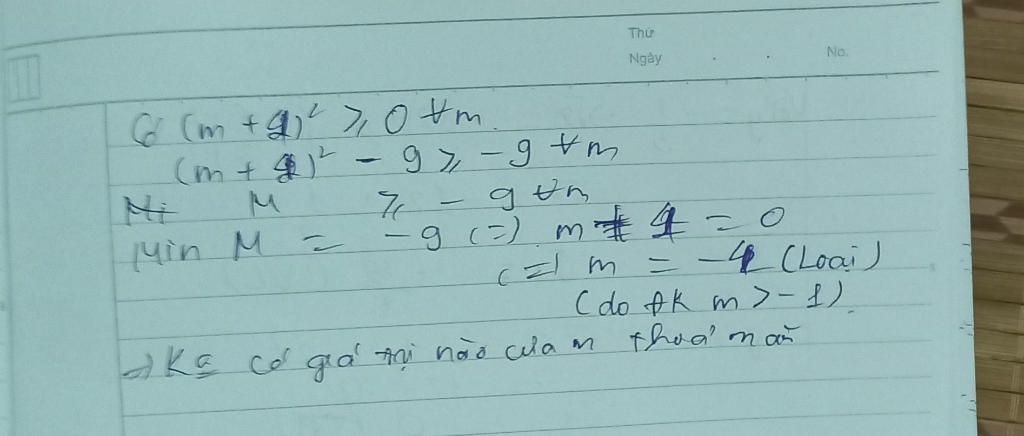 Thứ
Ngày . . No.
Có (m + 4)² ⩾ 0 ∀m.
(m + 4)² - 9 ⩾ -9 ∀m
M ⩾ - 9 ∀m
Min M = -9 (=) m + 4 = 0
(=) m = -4 (Loại)
(do ĐK m > -1)
=) K có giá trị nào của m thoả mãn